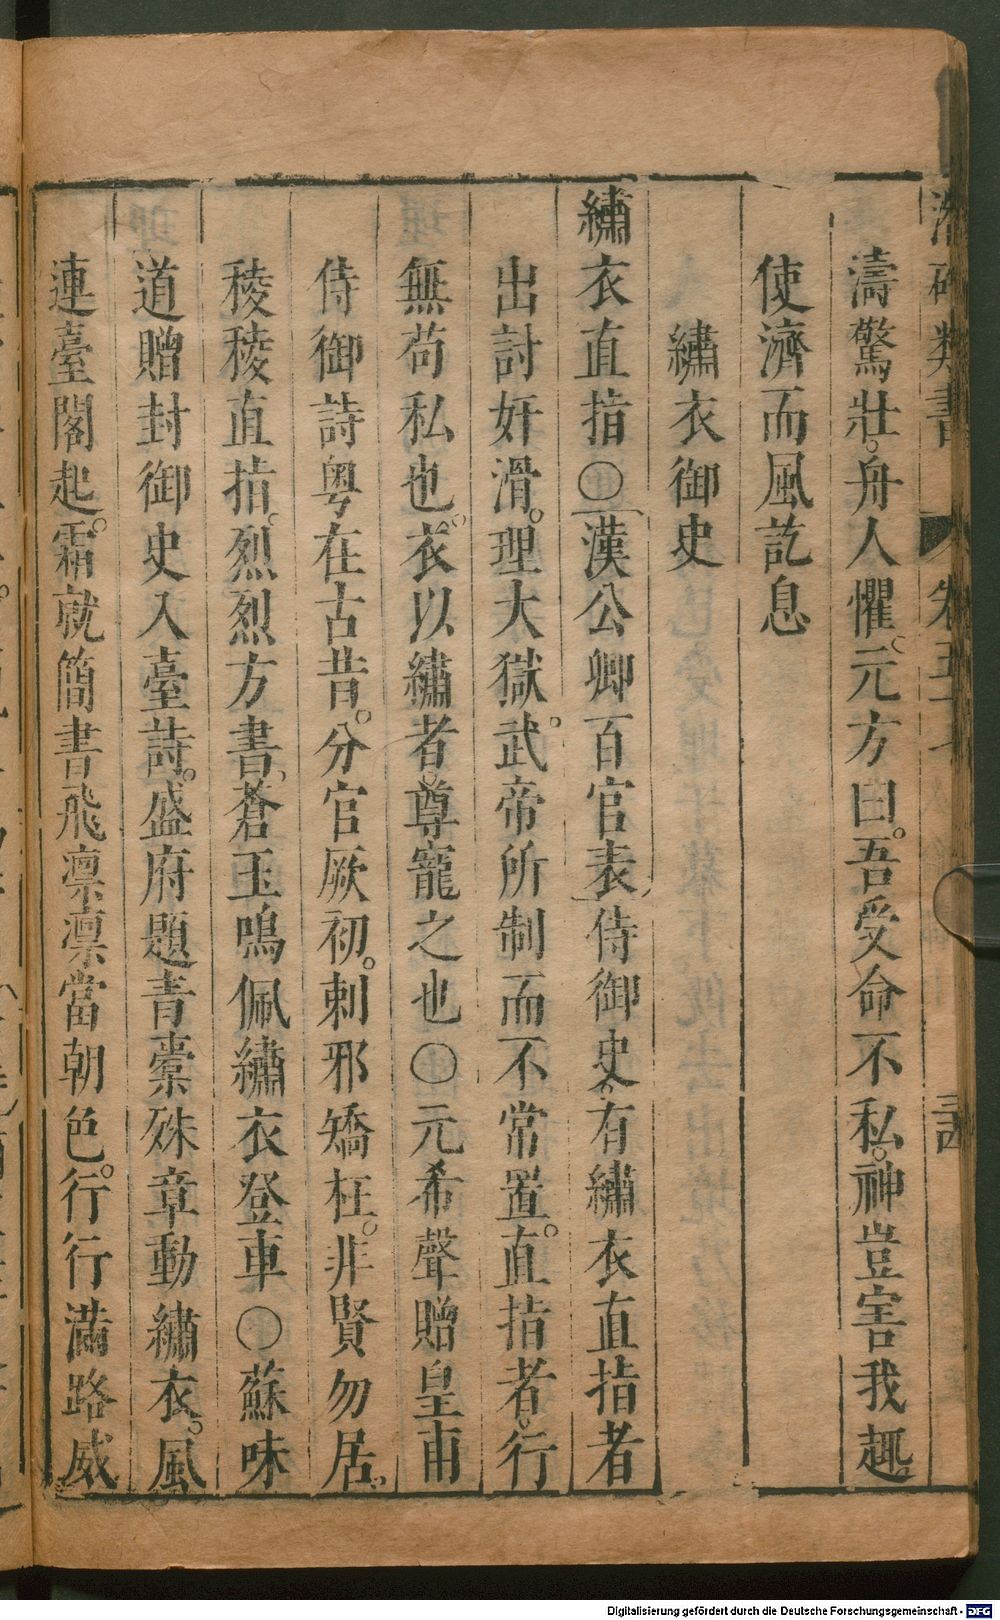 濤驚壯。舟人懼。元方曰。吾受命不私。神豈害我。趣
使濟而風訖息
繡衣御史
繡衣直指〇漢公卿百官表侍御史。有繡衣直指者
出討奸滑。理大獄。武帝所制而不常置。直指者。行
無苟私也。衣以繡者。尊寵之也〇元希聲贈皇甫
侍御詩粤在古昔。分官厥初。刺邪矯枉。非賢勿居。
稜稜直指。烈烈方書。蒼玉鳴佩繡衣登車〇蘇味
道贈封御史入臺詩。盛府題青槖殊章動繡衣。風
連臺閣起。霜就簡書飛凛凛當朝色。行行滿路威
類書
卷五十
Digitalisierung gefördert durch die Deutsche Forschungsgemeinschaft - DFG